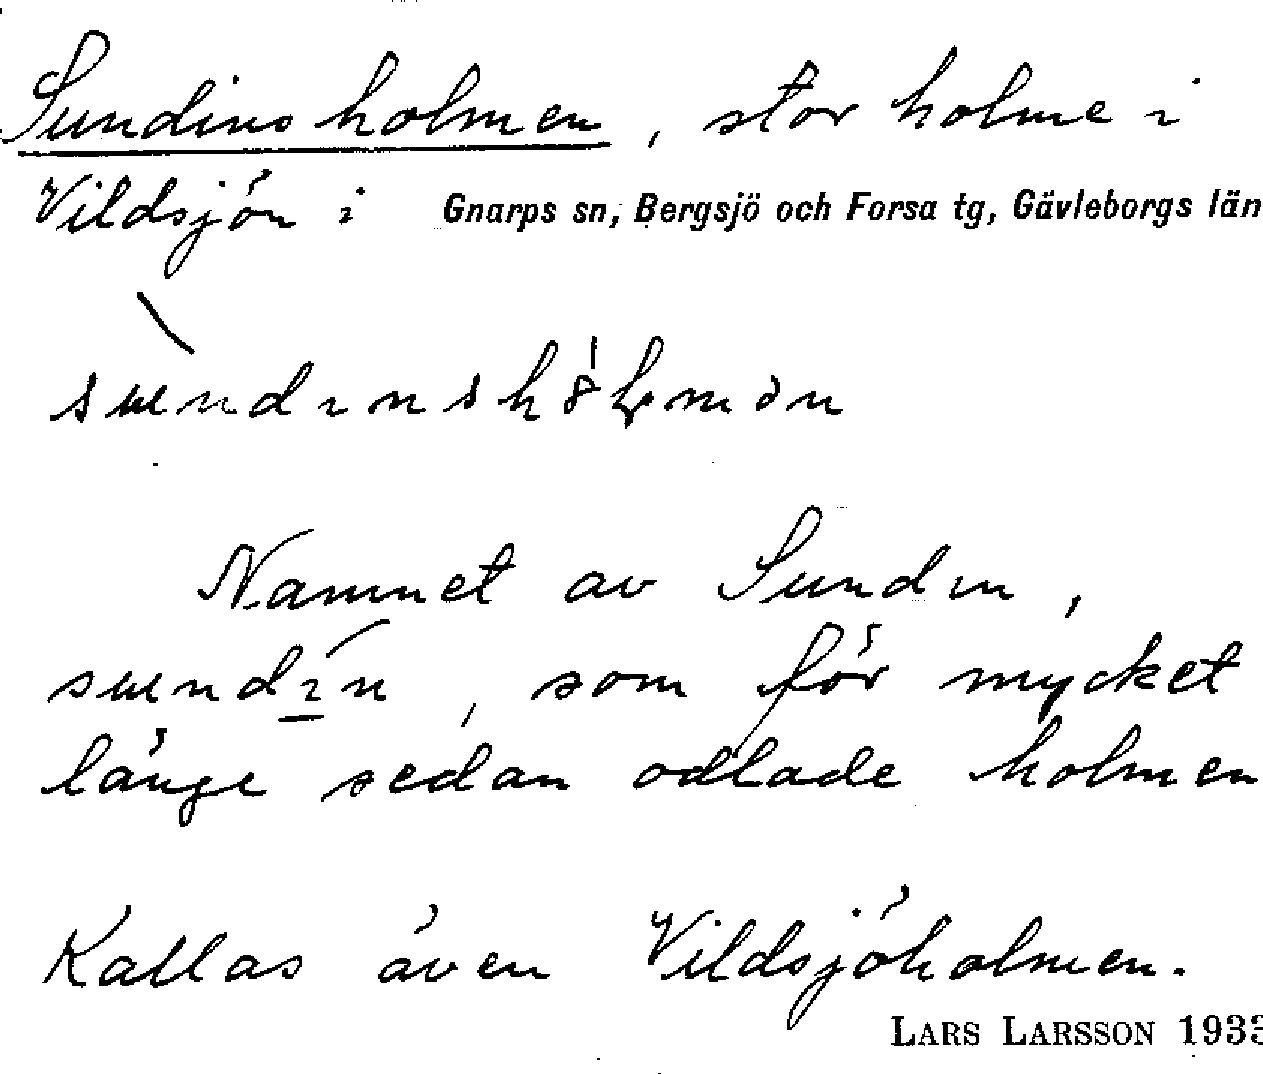 Sundinsholmen, stor holme i
Vildsjön i Gnarps sn, Bergsjö och Forsa tg, Gävleborgs län
Namnet av Sundin,
som för mycket
länge sedan odlade holmen
Kallas även Vildsjöholmen.
LARS LARSSON 1933